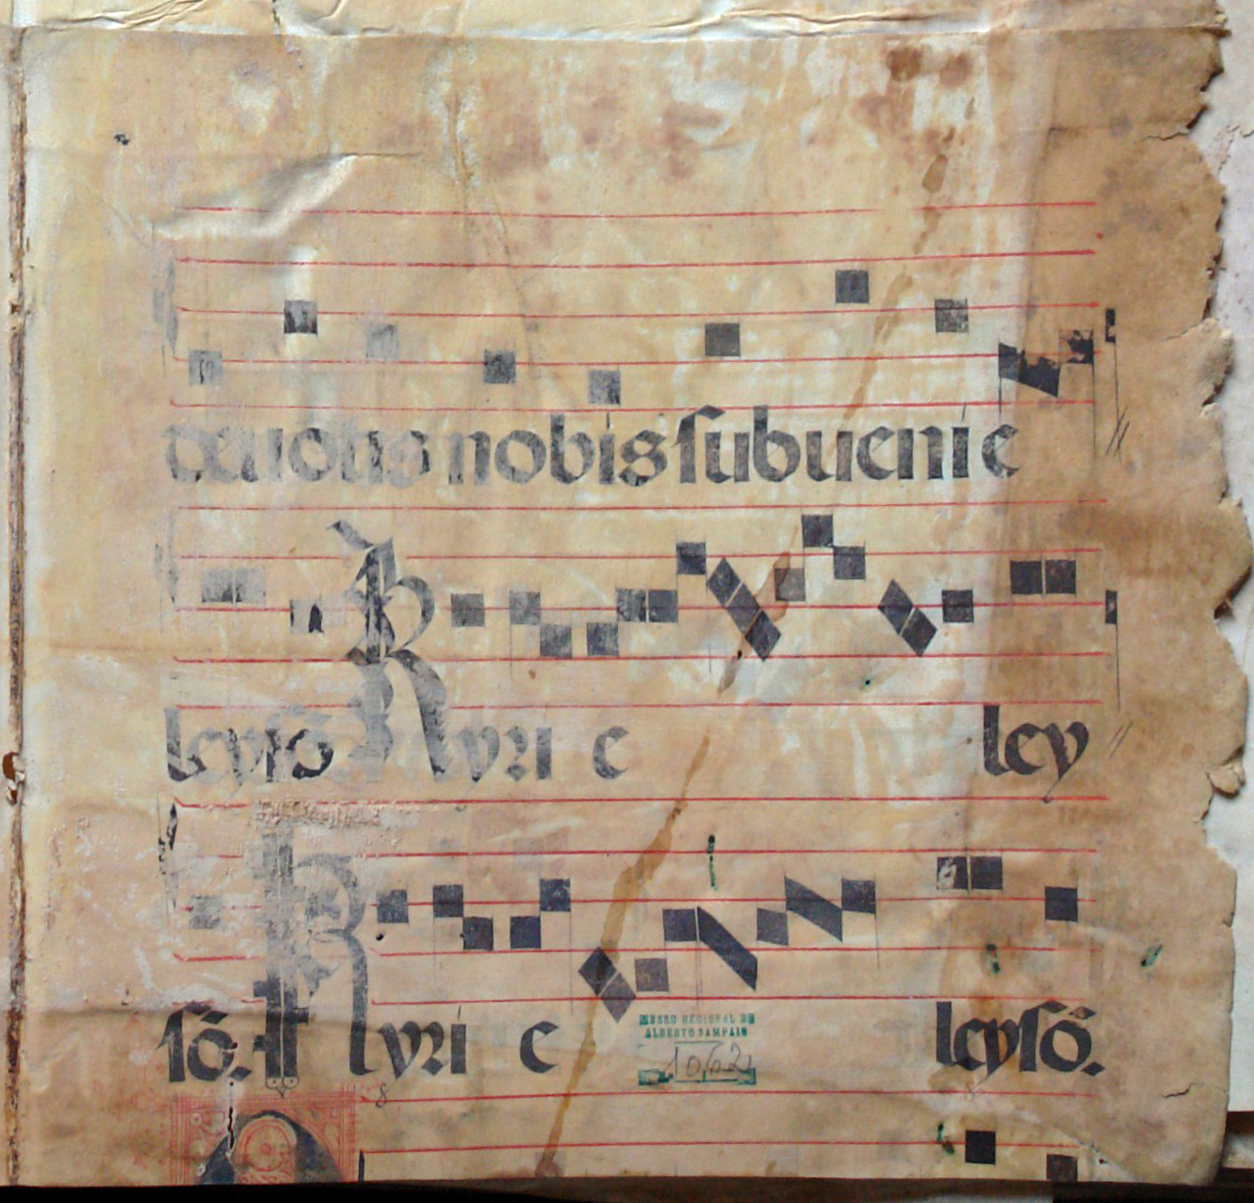 deuotis nobis ſubueni e
leyſō Kyri e ley
ſō. Kyri e leyſō.
MUSEU REGIONAL DE
ALBERTO SAMPAIO
1062